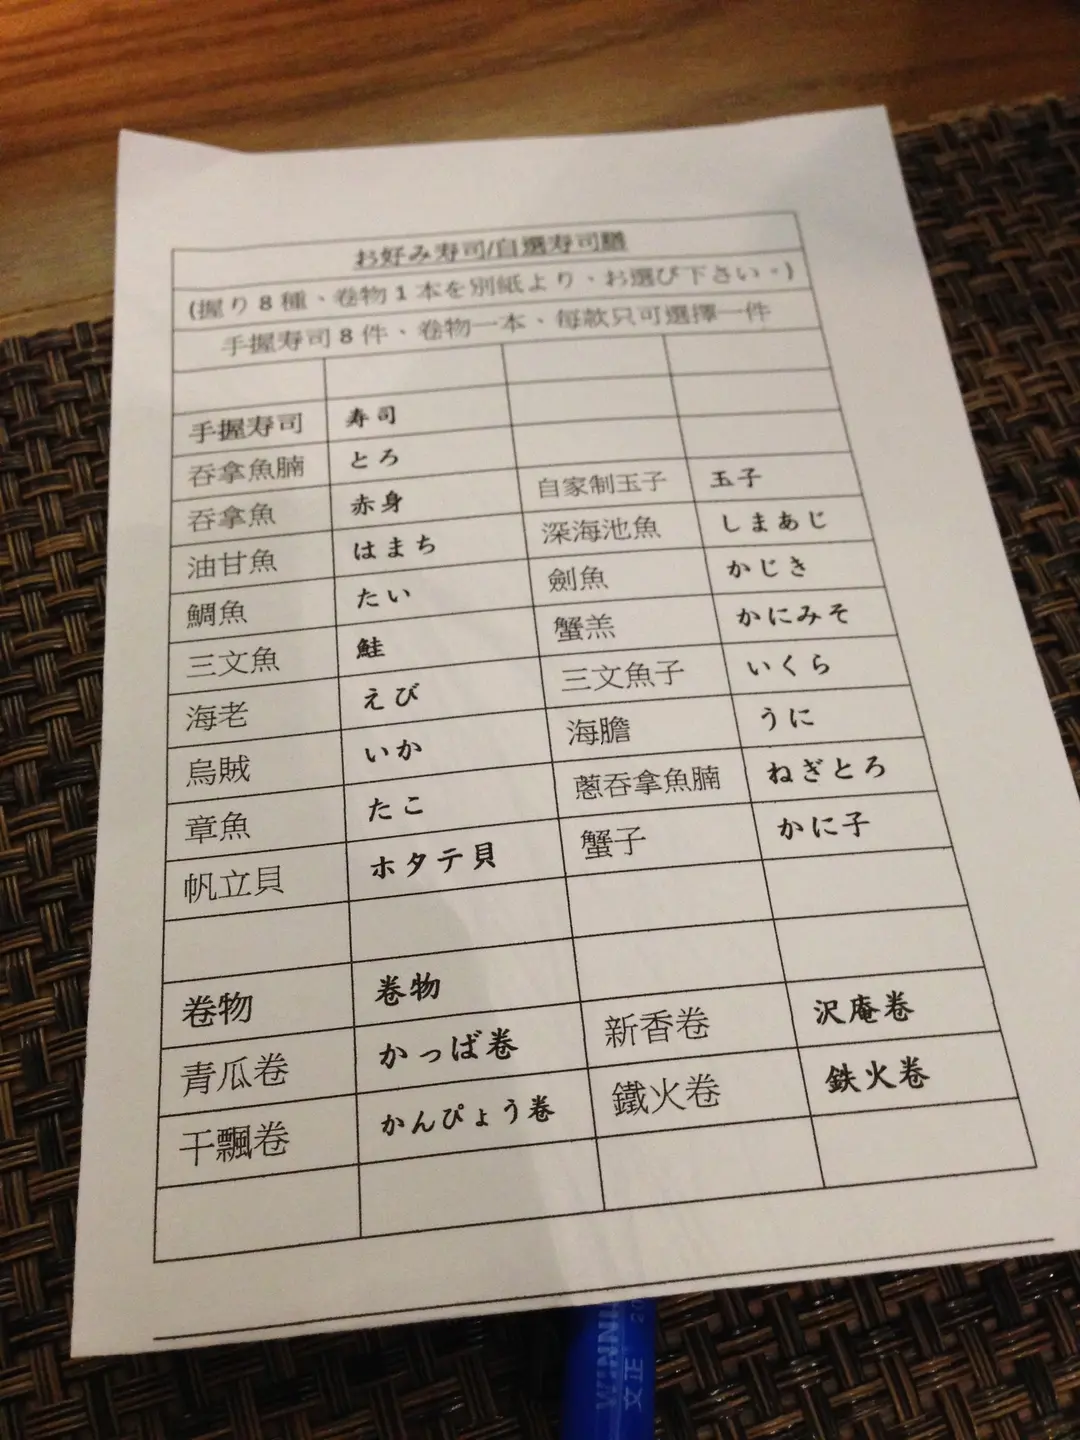 お好み寿司/自選寿司膳
(握り8種、卷物1本を別紙より、お選び下さい。)
手握寿司8件、卷物一本、每款只可選擇一件
手握寿司 寿司
吞拿魚腩 とろ 自家制玉子 玉子
吞拿魚 赤身 深海池魚 しまあじ
油甘魚 はまち 劍魚 かじき
鯛魚 たい 蟹羔 かにみそ
三文魚 鮭 三文魚子 いくら
海老 えび 海膽 うに
烏賊 いか 蔥吞拿魚腩 ねぎとろ
章魚 たこ 蟹子 かに子
帆立貝 ホタテ貝
卷物 卷物
青瓜卷 かっぱ卷 新香卷 沢庵卷
干瓢卷 かんぴょう卷 鐵火卷 鉄火卷
文正